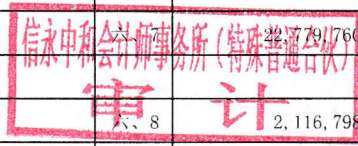 六、7 22,779,760
信永中和会计师事务所（特殊普通合伙）
审计
六、8 2,116,798